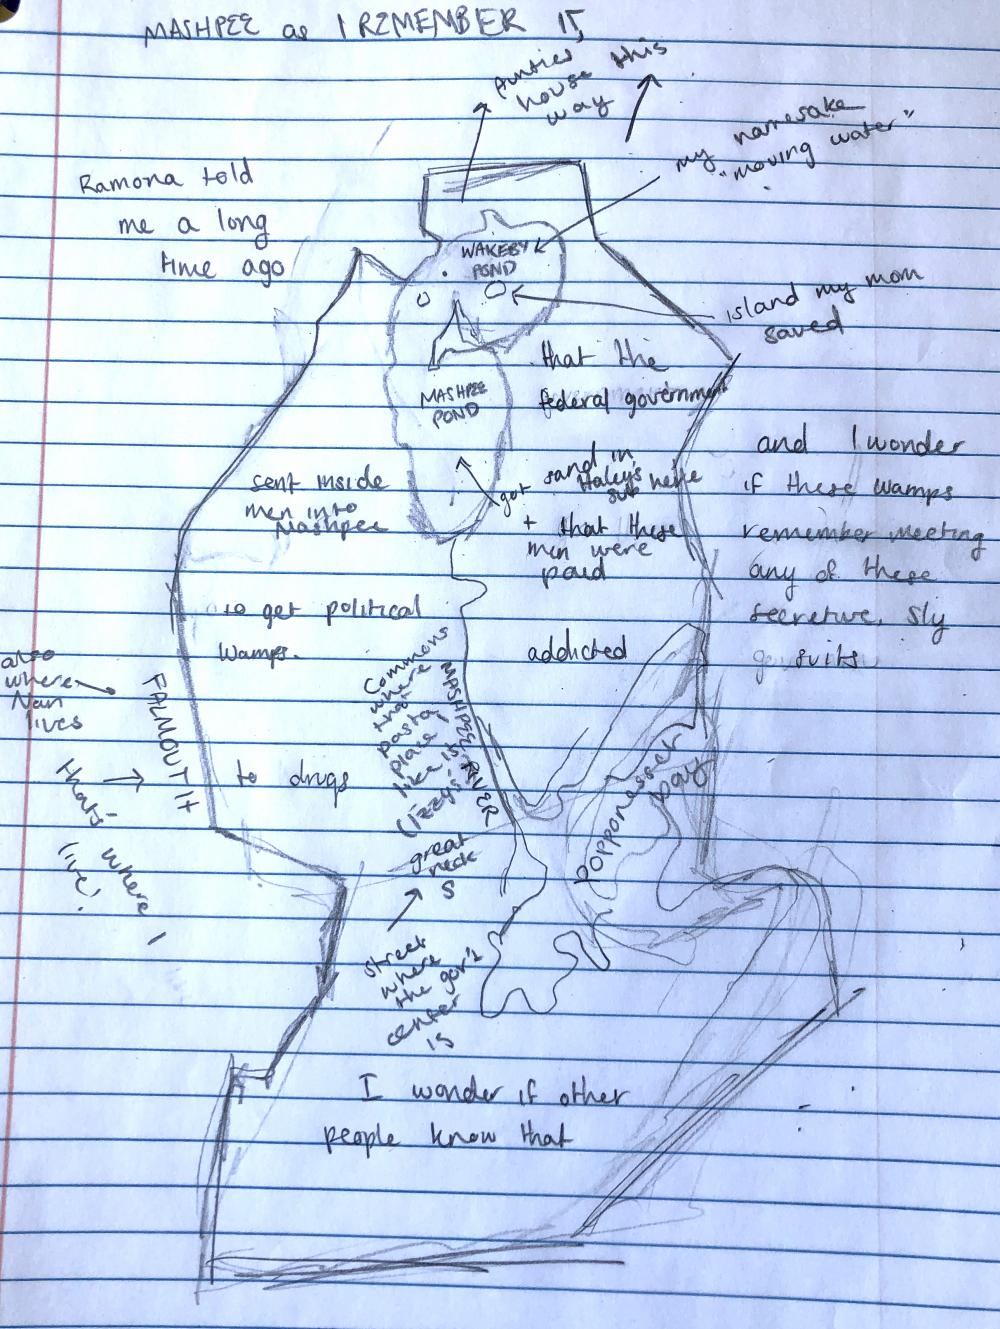 MASHPEE as I REMEMBER IT,
Aunties
house this
way
my namesake
"moving water"
Ramona told
me a long
time ago
WAKEBY
POND
island my mom
saved
that the
federal government
MASHPEE
POND
sent inside
men into
Mashpee
got sand in
Haley's
sub here
+ that these
men were
paid
and I wonder
if these wamps
remember meeting
any of these
secretive, sly
suits
to get political
wamps.
addicted
to drugs
also
where
Nan
lives
FALMOUTH
that's
where I
live!
Commons
where
that
pasta
place
like is
(Izzy's)
MASHPEE RIVER
popponesset
bay
great
neck
S
street
where
the gov't
center
is
I wonder if other
people know that